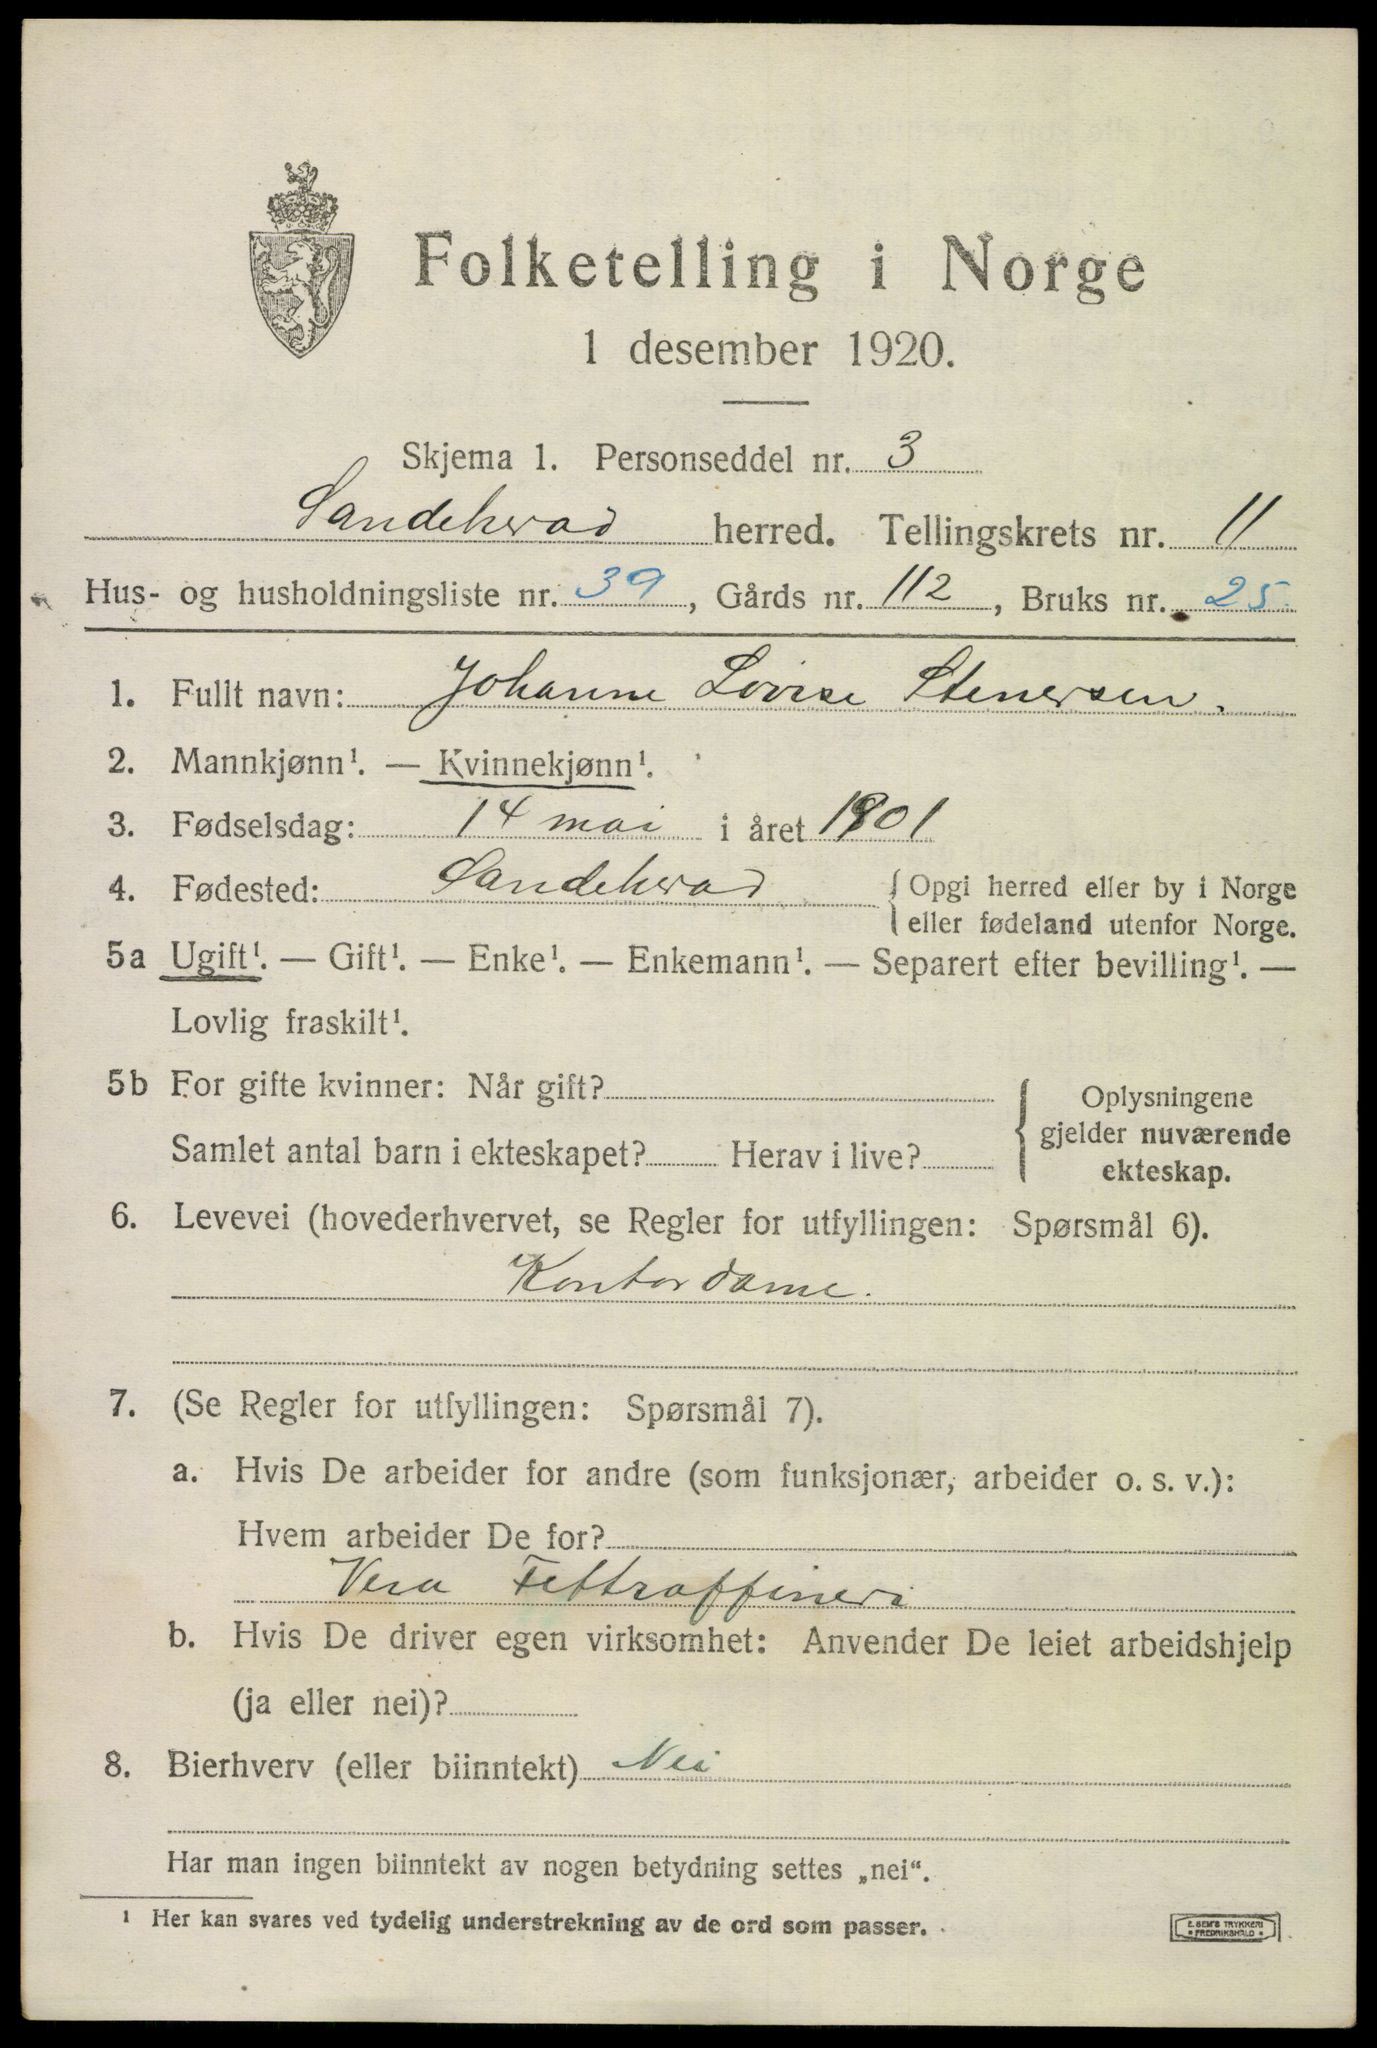 Folketelling i Norge
1 desember 1920.
Skjema 1. Personseddel nr. 3
Sandeherad herred. Tellingskrets nr. 11
Hus- og husholdningsliste nr. 39, Gårds nr. 112, Bruks nr. 25.
1. Fullt navn: Johanne Lovise Stenersen.
2. Mannkjønn¹. — Kvinnekjønn¹.
3. Fødselsdag: 14 mai i året 1901
4. Fødested: Sandeherad {Opgi herred eller by i Norge
eller fødeland utenfor Norge.
5a Ugift¹. — Gift¹. — Enke¹. — Enkemann¹. — Separert efter bevilling¹. —
Lovlig fraskilt¹.
5b For gifte kvinner: Når gift?
Samlet antal barn i ekteskapet? Herav i live?
{Oplysningene
gjelder nuværende
ekteskap.
6. Levevei (hovederhvervet, se Regler for utfyllingen: Spørsmål 6).
Kontordame.
7. (Se Regler for utfyllingen: Spørsmål 7).
a. Hvis De arbeider for andre (som funksjonær, arbeider o. s. v.):
Hvem arbeider De for?
Vera Fettraffineri
b. Hvis De driver egen virksomhet: Anvender De leiet arbeidshjelp
(ja eller nei)?
8. Bierhverv (eller biinntekt) Nei
Har man ingen biinntekt av nogen betydning settes „nei“.
¹ Her kan svares ved tydelig understrekning av de ord som passer.
E. SEM'S TRYKKERI
* FREDRIKSHALD *